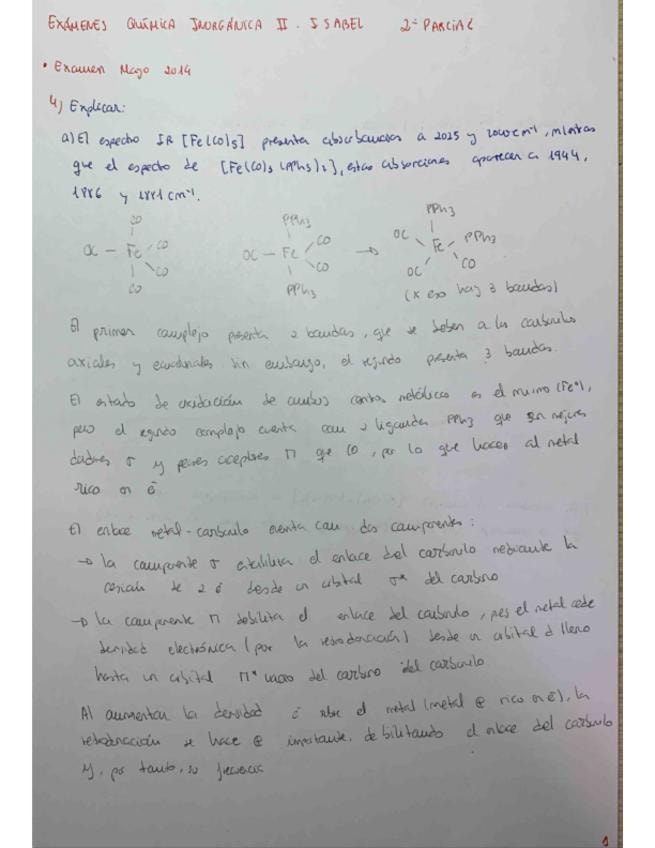 EXÁMENES QUÍMICA INORGÁNICA II. ISABEL 2º PARCIAL
• Examen Mayo 2014
4) Explicar:
a) El espectro IR [Fe(CO)5] presenta absorbancias a 2025 y 2000 cm-1, mientras
que el espectro de [Fe(CO)3(PPh3)2], estas absorciones aparecen a 1944,
1886 y 1881 cm-1.
CO
OC – Fe – CO
CO
CO
PPh3
OC – Fe – CO
CO
PPh3
→
PPh3
OC Fe PPh3
OC CO
(x eso hay 3 bandas)
El primer complejo presenta 2 bandas, que se deben a los carbonilos
axiales y ecuatoriales sin embargo, el segundo presenta 3 bandas.
El estado de oxidación de ambos centros metálicos es el mismo (Fe⁰),
pero el segundo complejo cuenta con 2 ligandos PPh3 que son mejores
dadores σ y peores aceptores π que CO, por lo que hacen al metal
rico en ē
El enlace metal-carbonilo cuenta con dos componentes:
→ La componente σ estabiliza el enlace del carbonilo mediante la
cesión de 2 ē desde un orbital σ* del carbono
→ La componente π debilita el enlace del carbonilo, pues el metal cede
densidad electrónica (por la retrodonación) desde un orbital d lleno
hasta un orbital π* vacío del carbono del carbonilo
Al aumentar la densidad ē sobre el metal (metal ⊕ rico en ē), la
retrodonación se hace ⊕ importante, debilitando el enlace del carbonilo
y, por tanto, su frecuencia
1